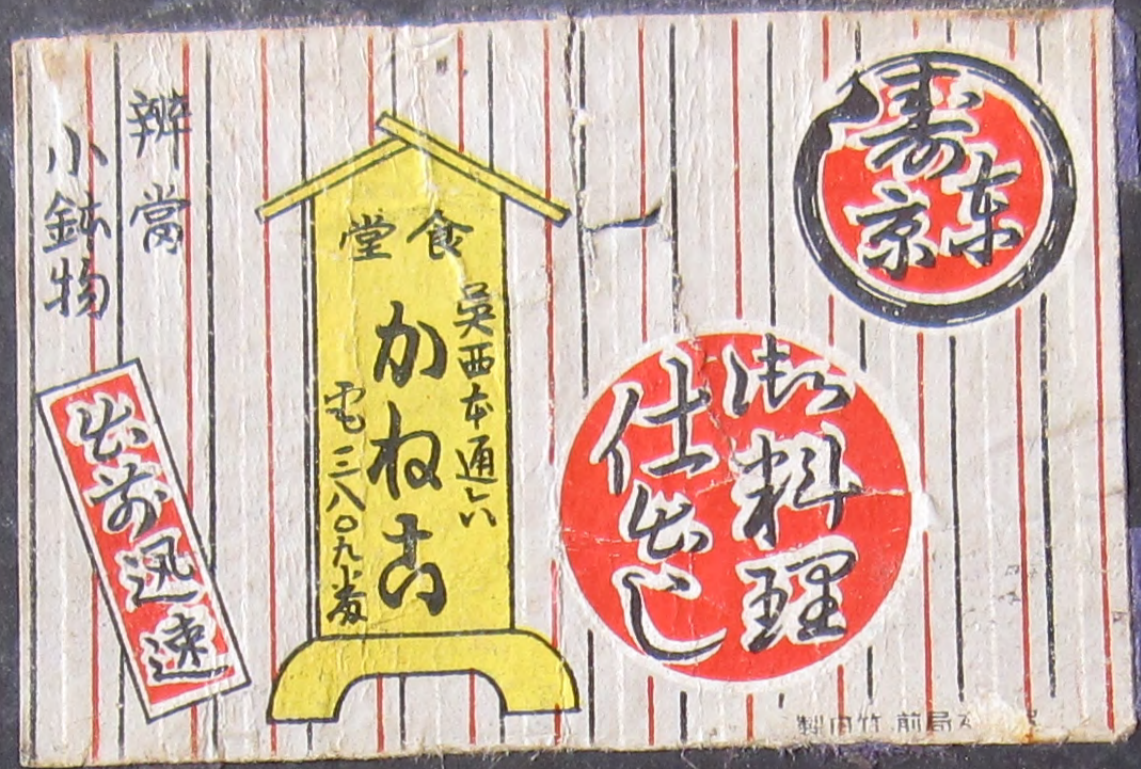 寿
東京
御料理
仕出し
食堂
呉西本通六
かね古
電三八〇九番
辨當
小鉢物
出前迅速
局前竹内製